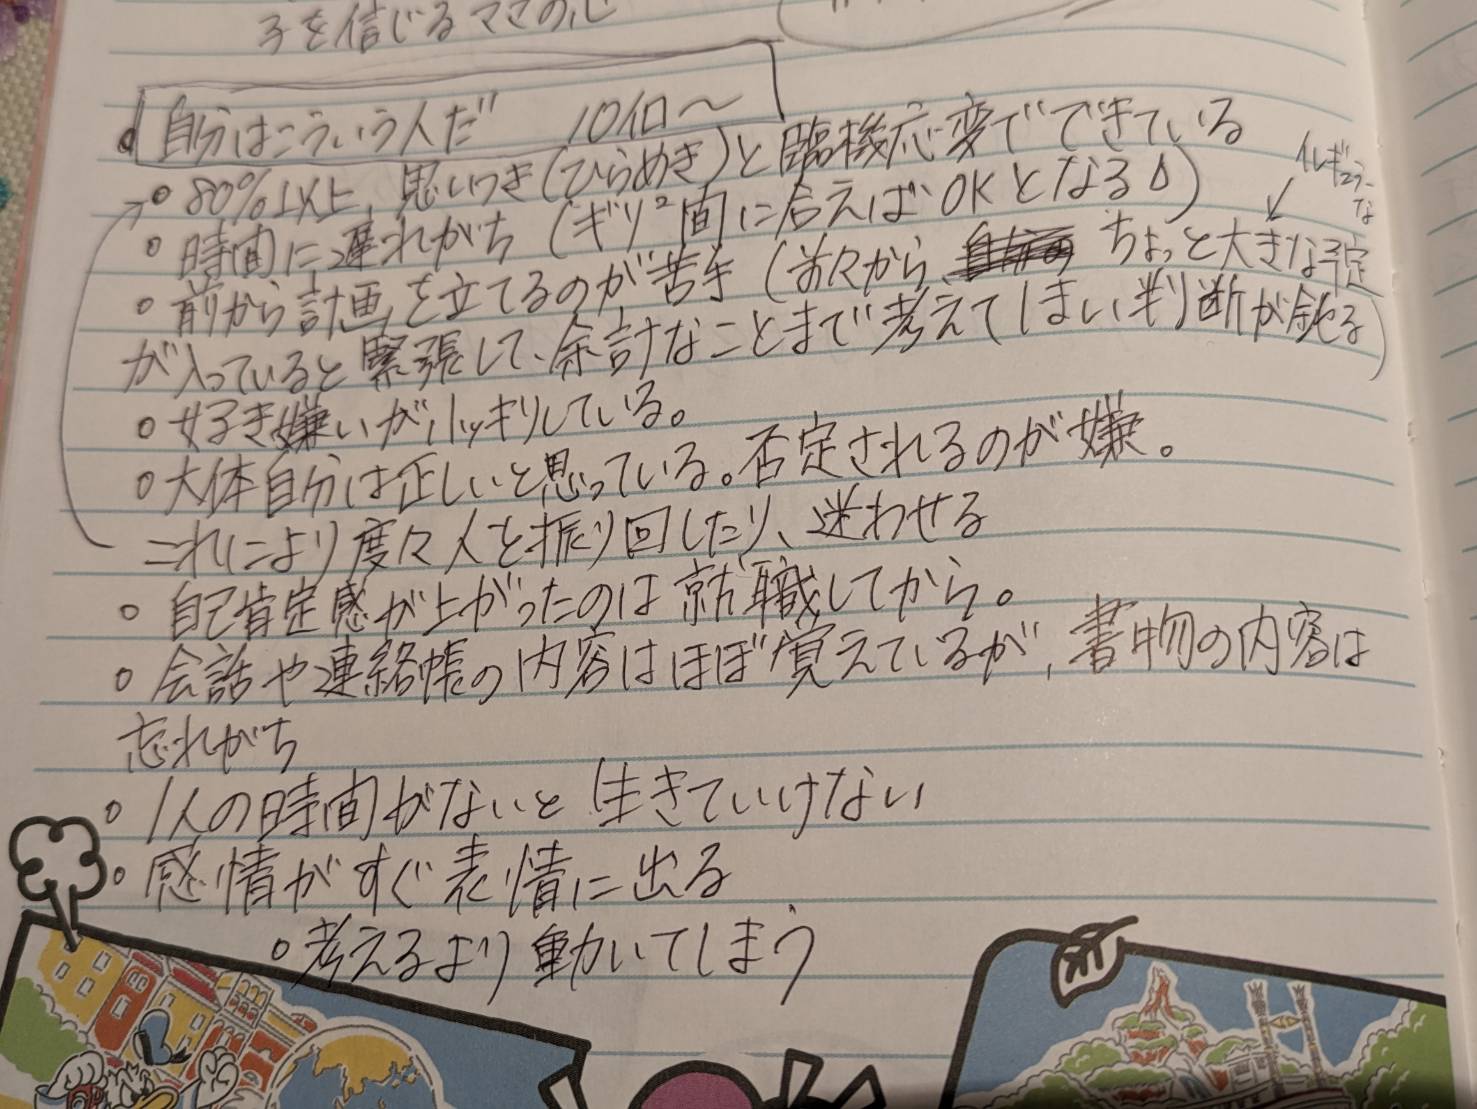 子を信じるママの心
自分はこういう人だ 10個〜
○ 80%以上、思いつき(ひらめき)と臨機応変でできている
○ 時間に遅れがち (ギリ²間に合えばOKとなる)
イレギュラーな
○ 前から計画を立てるのが苦手 (前々から、ちょっと大きな予定
が入っていると緊張して、余計なことまで考えてしまい判断が鈍る)
○ 好き嫌いがハッキリしている。
○ 大体自分は正しいと思っている。否定されるのが嫌。
これにより度々人を振り回したり、迷わせる
○ 自己肯定感が上がったのは就職してから。
○ 会話や連絡帳の内容はほぼ覚えているが、書物の内容は
忘れがち
○ 1人の時間がないと生きていけない
○ 感情がすぐ表情に出る
○ 考えるより動いてしまう